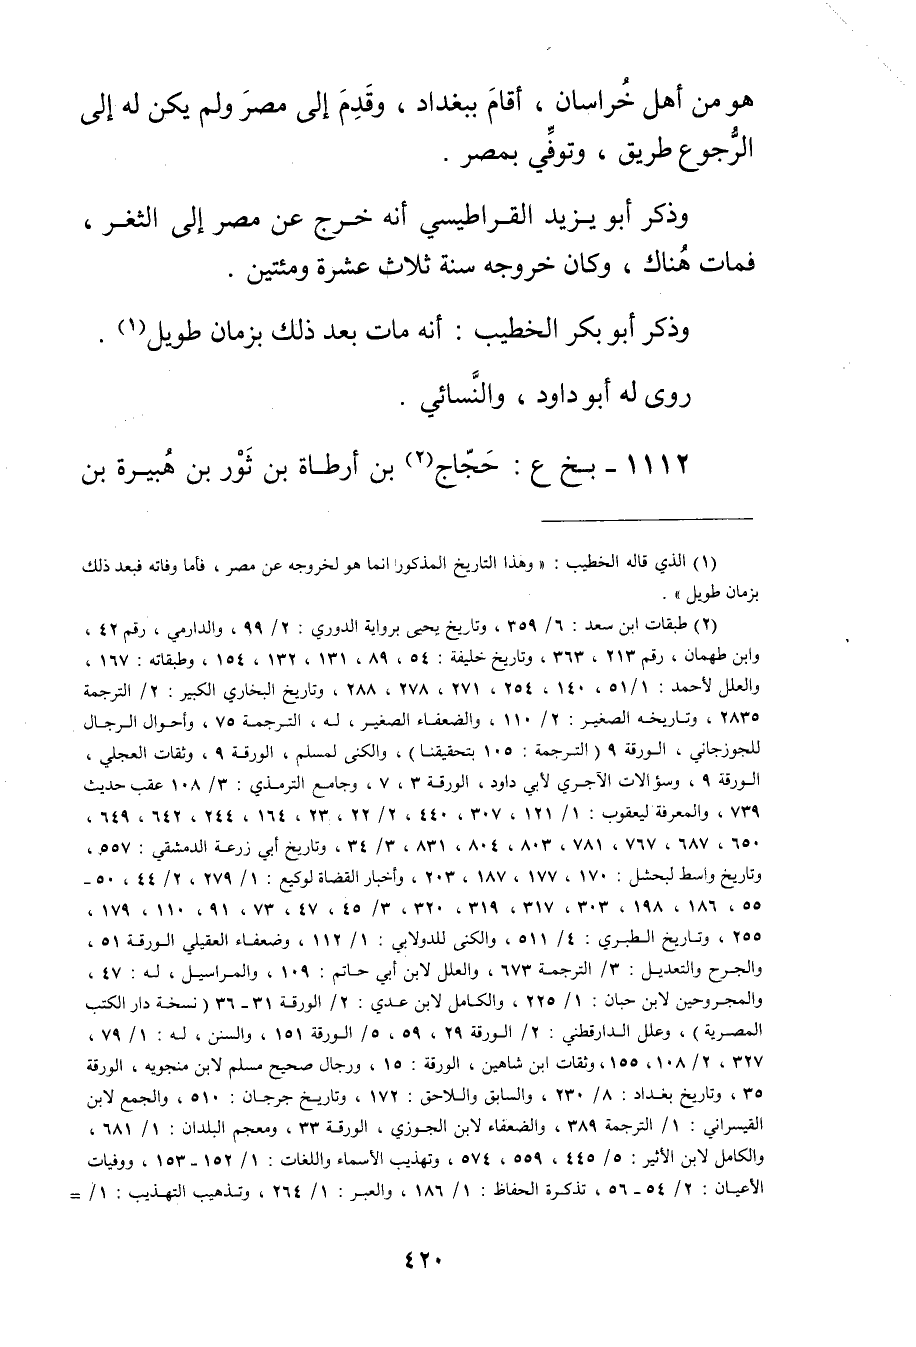 هو من أهل خُراسان ، أقامَ ببغداد ، وقَدِمَ إلى مصرَ ولم يكن له إلى
الرُّجوع طريق ، وتوفِّي بمصر .
وذكر أبو يزيد القراطيسي أنه خرج عن مصر إلى الثغر ،
فمات هُناك ، وكان خروجه سنة ثلاث عشرة ومئتين .
وذكر أبو بكر الخطيب : أنه مات بعد ذلك بزمان طويل(١) .
روى له أبو داود ، والنَّسائي .
١١١٢ - بخ ع : حَجّاج(٢) بن أرطاة بن ثَوْر بن هُبيرة بن
(١) الذي قاله الخطيب : « وهذا التاريخ المذكور انما هو لخروجه عن مصر ، فأما وفاته فبعد ذلك
بزمان طويل » .
(٢) طبقات ابن سعد : ٦/ ٣٥٩ ، وتاريخ يحيى برواية الدوري : ٢/ ٩٩ ، والدارمي ، رقم ٤٢ ،
وابن طهمان ، رقم ٢١٣ ، ٣٦٣ ، وتاريخ خليفة : ٥٤ ، ٨٩ ، ١٣١ ، ١٣٢ ، ١٥٤ ، وطبقاته : ١٦٧ ،
والعلل لأحمد : ١/ ٥١ ، ١٤٠ ، ٢٥٤ ، ٢٧١ ، ٢٧٨ ، ٢٨٨ ، وتاريخ البخاري الكبير : ٢/ الترجمة
٢٨٣٥ ، وتاريخه الصغير : ٢/ ١١٠ ، والضعفاء الصغير ، له ، الترجمة ٧٥ ، وأحوال الرجال
للجوزجاني ، الورقة ٩ ( الترجمة : ١٠٥ بتحقيقنا ) ، والكنى لمسلم ، الورقة ٩ ، وثقات العجلي ،
الورقة ٩ ، وسؤالات الآجري لأبي داود ، الورقة ٣ ، ٧ ، وجامع الترمذي : ٣/ ١٠٨ عقب حديث
٧٣٩ ، والمعرفة ليعقوب : ١/ ١٢١ ، ٣٠٧ ، ٤٤٠ ، ٢/ ٢٢ ، ٢٣ ، ١٦٤ ، ٢٤٤ ، ٦٤٢ ، ٦٤٩ ،
٦٥٠ ، ٦٨٧ ، ٧٦٧ ، ٧٨١ ، ٨٠٣ ، ٨٠٤ ، ٨٣١ ، ٣/ ٣٤ ، وتاريخ أبي زرعة الدمشقي : ٥٥٧ ،
وتاريخ واسط لبحشل : ١٧٠ ، ١٧٧ ، ١٨٧ ، ٢٠٣ ، وأخبار القضاة لوكيع : ١/ ٢٧٩ ، ٢/ ٤٤ ، ٥٠ -
٥٥ ، ١٨٦ ، ١٩٨ ، ٣٠٣ ، ٣١٧ ، ٣١٩ ، ٣٢٠ ، ٣/ ٤٥ ، ٤٧ ، ٧٣ ، ٩١ ، ١١٠ ، ١٧٩ ،
٢٥٥ ، وتاريخ الطبري : ٤/ ٥١١ ، والكنى للدولابي : ١/ ١١٢ ، وضعفاء العقيلي الورقة ٥١ ،
والجرح والتعديل : ٣/ الترجمة ٦٧٣ ، والعلل لابن أبي حاتم : ١٠٩ ، والمراسيل ، له : ٤٧ ،
والمجروحين لابن حبان : ١/ ٢٢٥ ، والكامل لابن عدي : ٢/ الورقة ٣١ - ٣٦ ( نسخة دار الكتب
المصرية ) ، وعلل الدارقطني : ٢/ الورقة ٢٩ ، ٥٩ ، ٥/ الورقة ١٥١ ، والسنن ، له : ١/ ٧٩ ،
٣٢٧ ، ٢/ ١٠٨ ، ١٥٥ ، وثقات ابن شاهين ، الورقة : ١٥ ، ورجال صحيح مسلم لابن منجويه ، الورقة
٣٥ ، وتاريخ بغداد : ٨/ ٢٣٠ ، والسابق واللاحق : ١٧٢ ، وتاريخ جرجان : ٥١٠ ، والجمع لابن
القيسراني : ١/ الترجمة ٣٨٩ ، والضعفاء لابن الجوزي ، الورقة ٣٣ ، ومعجم البلدان : ١/ ٦٨١ ،
والكامل لابن الأثير : ٥/ ٤٤٥ ، ٥٥٩ ، ٥٧٤ ، وتهذيب الأسماء واللغات : ١/ ١٥٢ - ١٥٣ ، ووفيات
الأعيان : ٢/ ٥٤ - ٥٦ ، تذكرة الحفاظ : ١/ ١٨٦ ، والعبر : ١/ ٢٦٤ ، وتذهيب التهذيب : ١/ =
٤٢٠